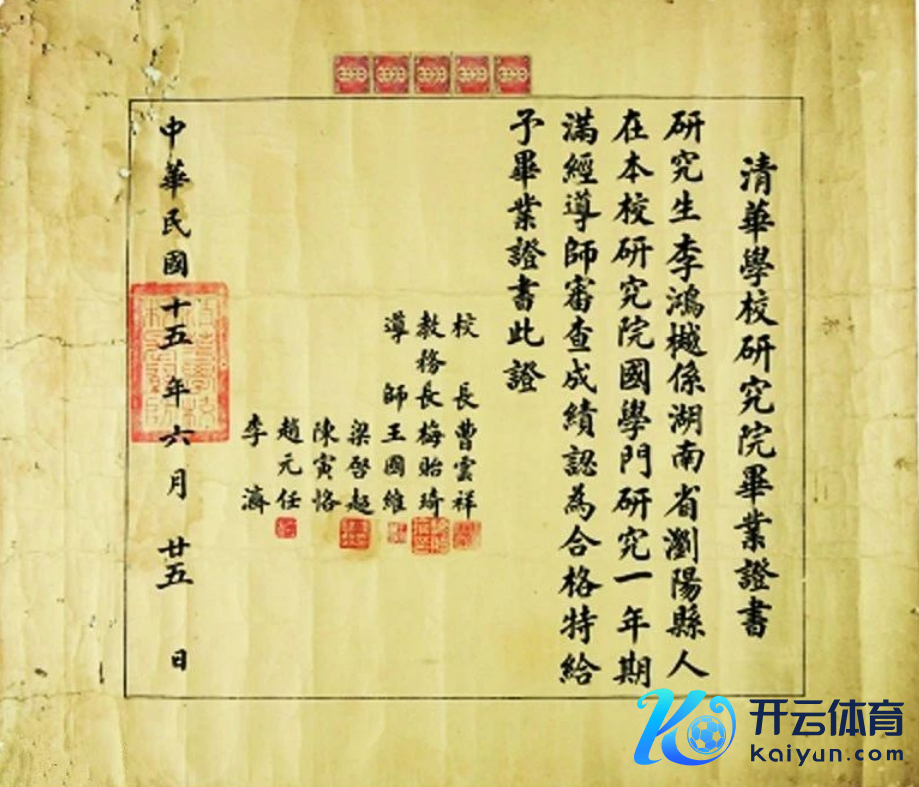 清華學校研究院畢業證書
研究生李鴻樾係湖南省瀏陽縣人
在本校研究院國學門研究一年期
滿經導師審查成績認為合格特給
予畢業證書此證
校長曹雲祥
教務長梅貽琦
導師王國維
梁啓超
陳寅恪
趙元任
李濟
中華民國十五年六月廿五日
开云体育
kaiyun.com